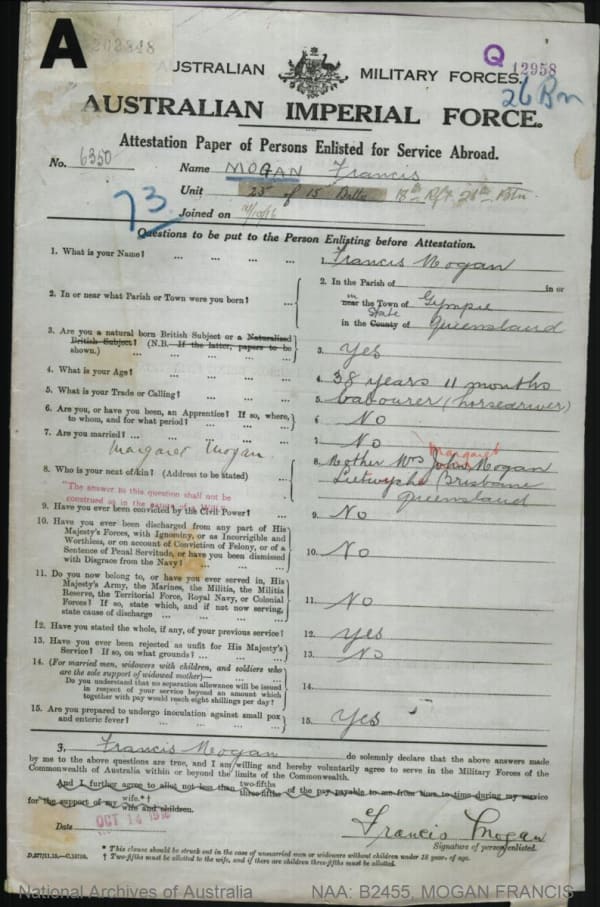 A
Q 12958
AUSTRALIAN MILITARY FORCES.
26 Bn
AUSTRALIAN IMPERIAL FORCE.
Attestation Paper of Persons Enlisted for Service Abroad.
No. 6350 Name MOGAN Francis
Unit 25 of 15 18th Rft 26th Batn
73 Joined on
Questions to be put to the Person Enlisting before Attestation.
1. What is your Name? ... ... ... ... 1. Francis Mogan
2. In or near what Parish or Town were you born? ... 2. In the Parish of in or
in near the Town of Gympie
in the County State of Queensland
3. Are you a natural born British Subject or a Naturalised
British Subject? (N.B.—If the latter, papers to be
shown.) 3. Yes
4. What is your Age? 4. 38 years 11 months
5. What is your Trade or Calling? 5. Labourer (horsedriver)
6. Are you, or have you been, an Apprentice? If so, where,
to whom, and for what period? 6. No
7. Are you married? 7. No
Margaret Mogan
8. Who is your next of kin? (Address to be stated) 8. Mother Mrs Margaret Mogan
Lutwyche Brisbane
Queensland
"The answer to this question shall not be
construed as in the nature of a
9. Have you ever been convicted by the Civil Power? 9. No
10. Have you ever been discharged from any part of His
Majesty's Forces, with Ignominy, or as Incorrigible and
Worthless, or on account of Conviction of Felony, or of a
Sentence of Penal Servitude, or have you been dismissed
with Disgrace from the Navy? 10. No
11. Do you now belong to, or have you ever served in, His
Majesty's Army, the Marines, the Militia, the Militia
Reserve, the Territorial Force, Royal Navy, or Colonial
Forces? If so, state which, and if not now serving,
state cause of discharge 11. No
12. Have you stated the whole, if any, of your previous service? 12. Yes
13. Have you ever been rejected as unfit for His Majesty's
Service? If so, on what grounds? 13. No
14. (For married men, widowers with children, and soldiers who
are the sole support of widowed mother)—
Do you understand that no separation allowance will be issued
in respect of your service beyond an amount which
together with pay would reach eight shillings per day? 14.
15. Are you prepared to undergo inoculation against small pox
and enteric fever? 15. Yes
I, Francis Mogan do solemnly declare that the above answers made
by me to the above questions are true, and I am willing and hereby voluntarily agree to serve in the Military Forces of the
Commonwealth of Australia within or beyond the limits of the Commonwealth.
And I further agree to allot not less than two-fifths three-fifths of the pay payable to me from time to time during my service
for the support of my wife.*† wife and children.
Date OCT 14 1916 Francis Mogan
Signature of person enlisted.
* This clause should be struck out in the case of unmarried men or widowers without children under 18 years of age.
† Two-fifths must be allotted to the wife, and if there are children three-fifths must be allotted.
National Archives of Australia NAA: B2455, MOGAN FRANCIS